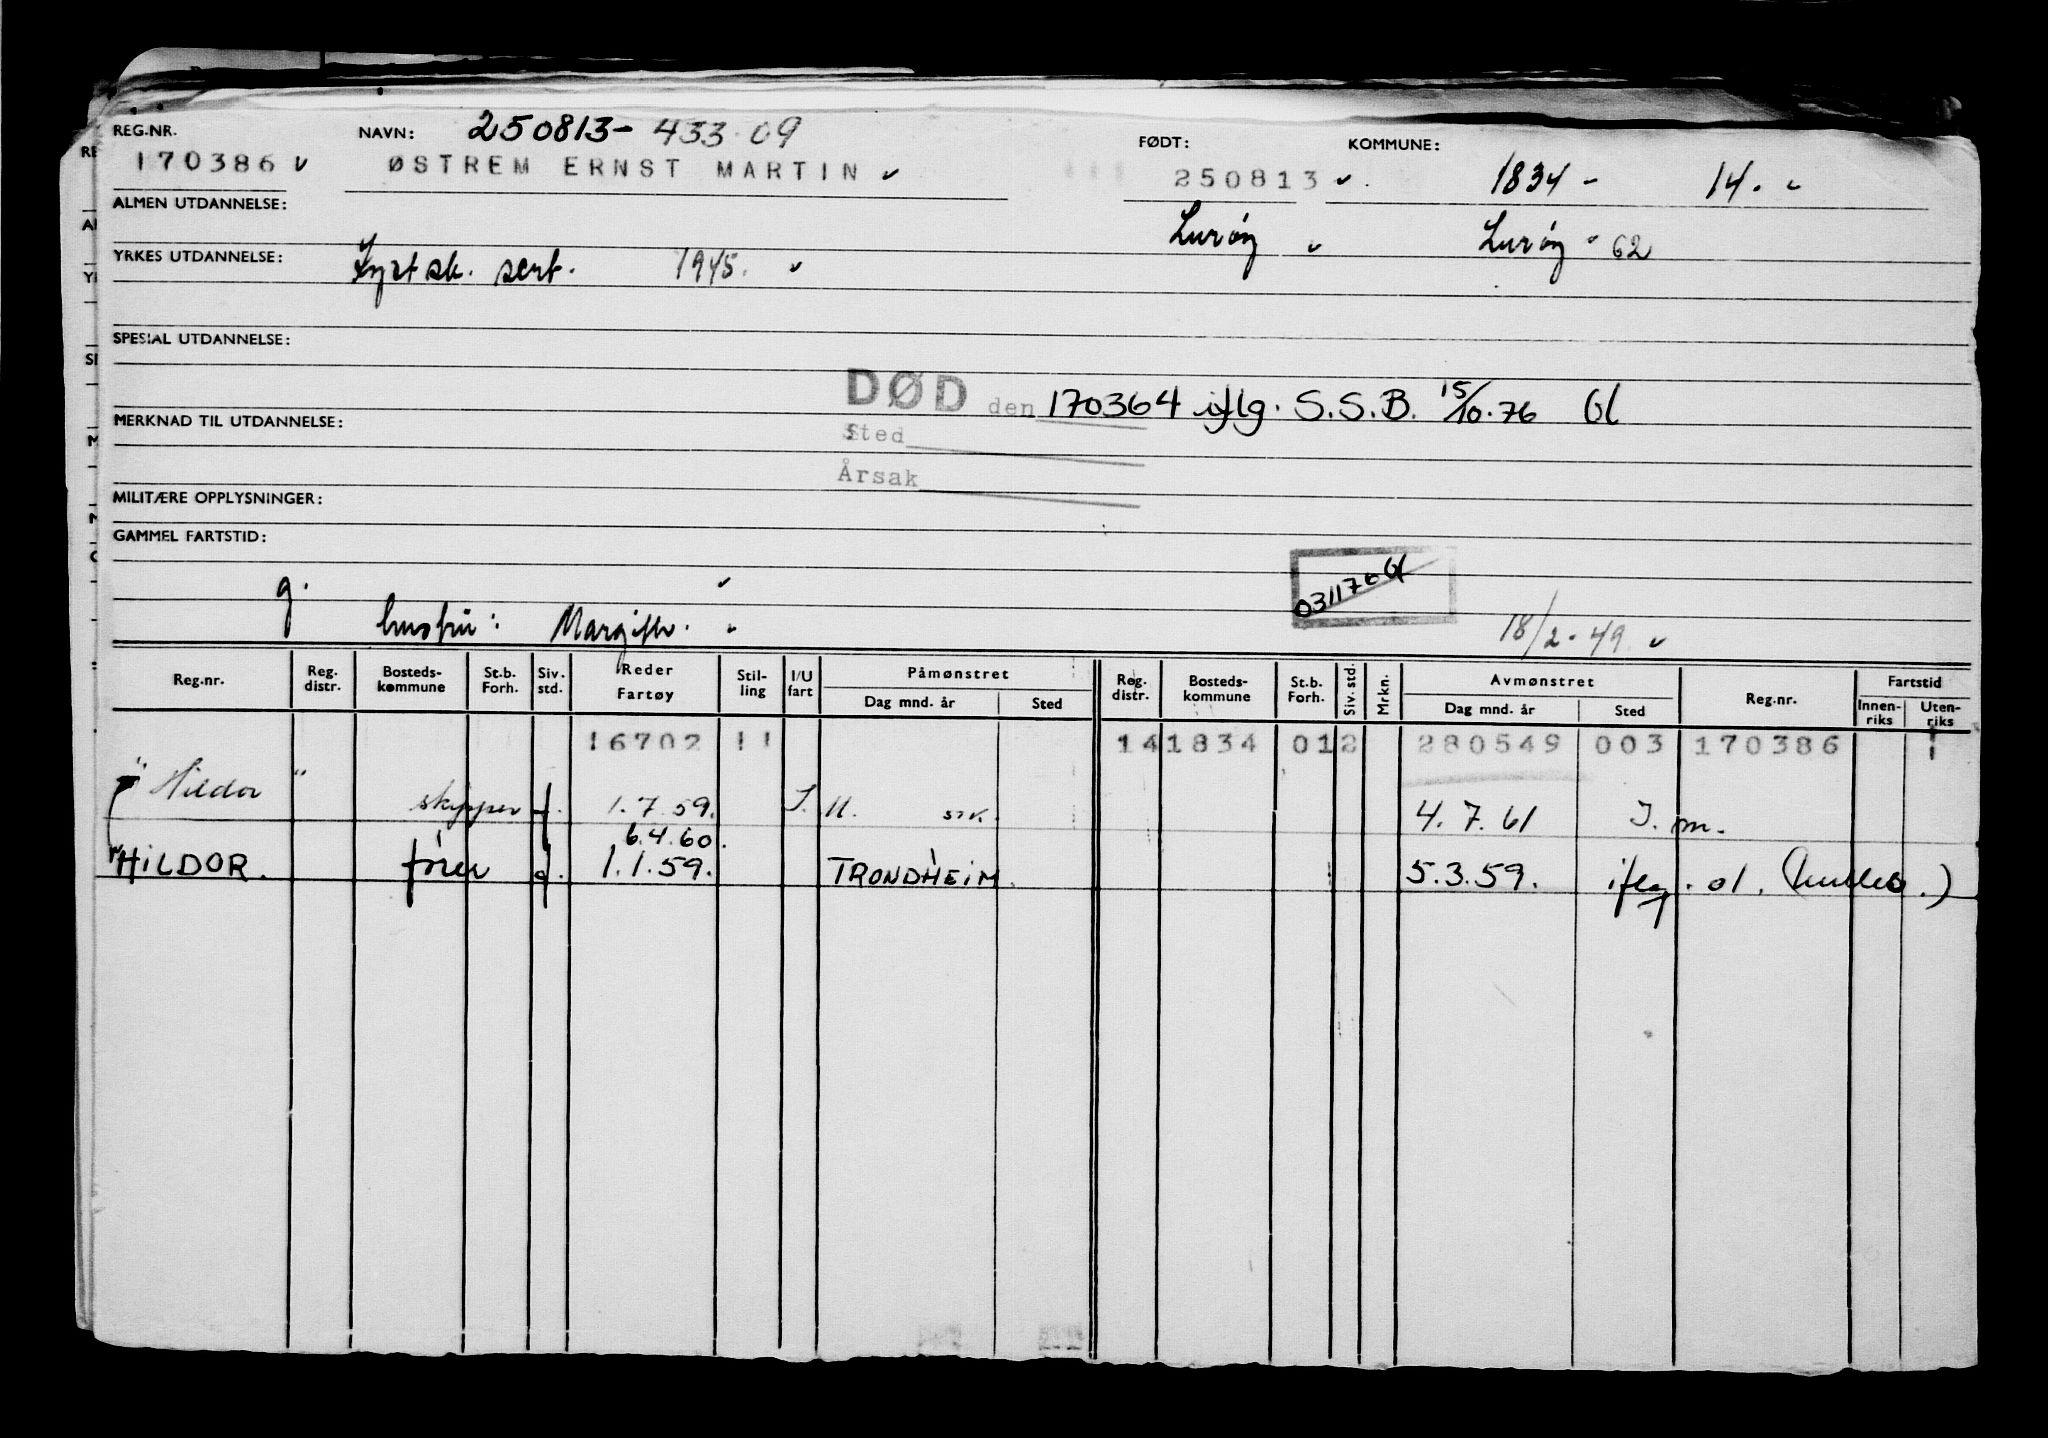 REG.NR. NAVN: 250813- 433 09 FØDT: KOMMUNE:
170386 ØSTREM ERNST MARTIN 250813 1834 - 14.
ALMEN UTDANNELSE: Lurøy Lurøy 62
YRKES UTDANNELSE: Kystsk. sert. 1945.
SPESIAL UTDANNELSE:
DØD den 170364 iflg. S.S.B. 15/10.76 Gl
MERKNAD TIL UTDANNELSE: Sted
Årsak
MILITÆRE OPPLYSNINGER:
GAMMEL FARTSTID:
031176 Gl
g.
hustru: 18/2-49
Reg.nr. Reg. distr. Bosteds- kommune St.b. Forh. Siv. std. Reder Fartøy Stil- ling I/U fart Påmønstret Dag mnd. år Sted Reg. distr. Bosteds- kommune St.b. Forh. Siv. std. Mrkn. Avmønstret Dag mnd. år Sted Reg.nr. Fartstid Innen- riks Uten- riks
16702 11 14 1834 01 2 280549 003 170386
"Hildor" skipper g. 1.7.59. I. 4.7.61 I. m.
6.4.60.
"HILDOR. fører g. 1.1.59. TRONDHEIM. 5.3.59. iflg. ol.